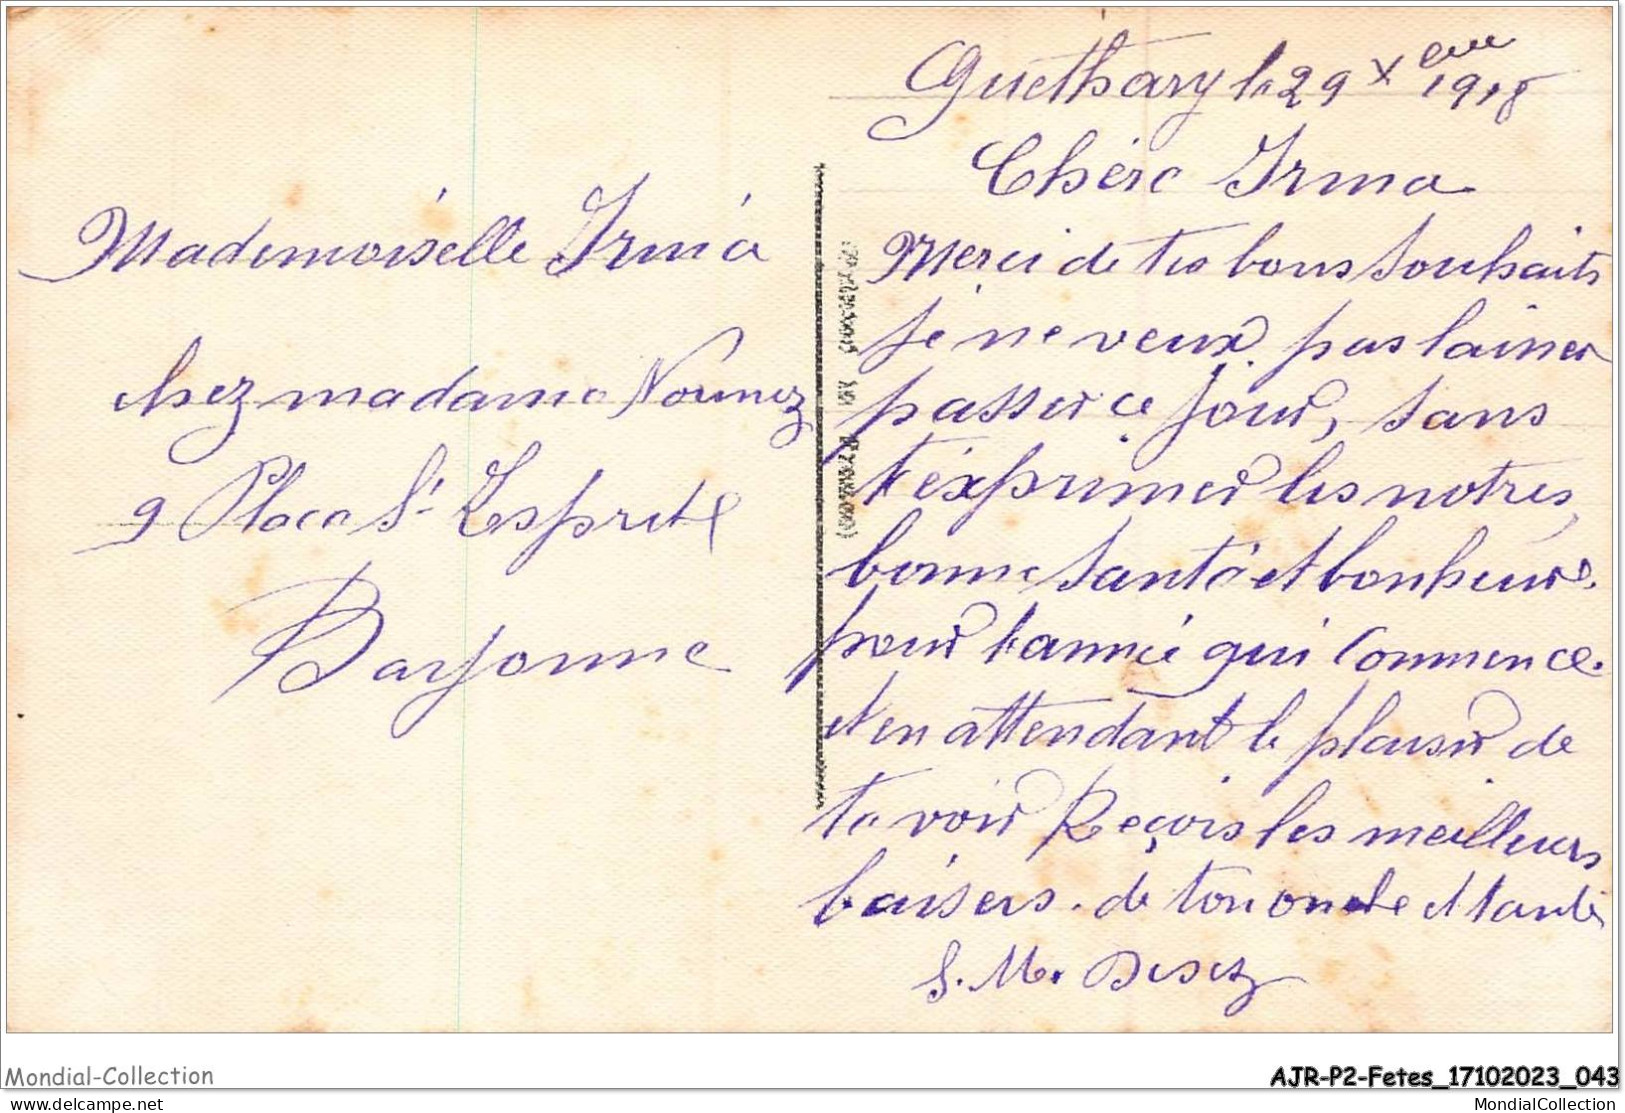 Mademoiselle Irma
chez madame Nounez
9 Place St Esprit
Bayonne
Guethary le 29 Xem 1918
Chère Irma
Merci de tes bons souhaits
je ne veux pas laisser
passer ce jour, sans
t'exprimer les notres,
bonne santé et bonheur
pour l'année qui commence.
et en attendant le plaisir de
te voir Reçois les meilleurs
baisers. de ton oncle et tante
S. M. Desez
Mondial-Collection
AJR-P2-Fetes_17102023_043
www.delcampe.net
MondialCollection